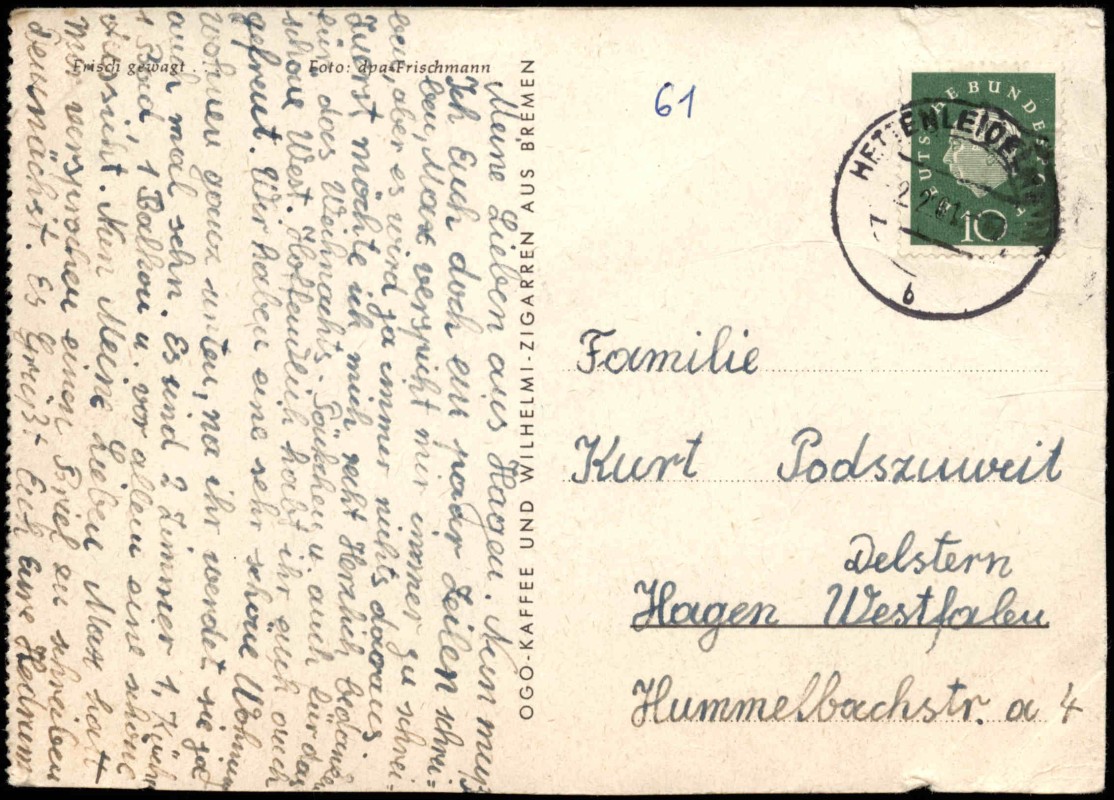 Frisch gewagt ...
Foto: dpa-Frischmann
OGO-KAFFEE UND WILHELMI-ZIGARREN AUS BREMEN
Meine Lieben aus Hagen. Nun muß
Ich Euch doch ein paar Zeilen schrei=
ben, Max verspricht mir immer zu schrei=
ben, aber es wird ja immer nichts daraus.
Zuerst möchte ich mich recht Herzlich bedanken
für das Weihnachts Päckchen u. auch für das
schöne West. Hoffendlich habt ihr euch auch
gefreut. Wir haben eine sehr schöne Wohnung
wohnen ganz unten, na ihr werdet sie ja
auch mal sehn. Es sind 2 Zimmer 1, Küche
1 Bad, 1 Balkon u. vor allen eine schöne
Aussicht. Nun Meine Lieben Max hat
mir versprochen einen Brief zu schreiben
demnächst. Es Grüßt Euch Eure
61
DEUTSCHE BUNDESPOST
10
HETTENLEIDELHEIM
b
Familie
Kurt Podszuweit
Delstern
Hagen Westfalen
Hummelbachstr. a 4